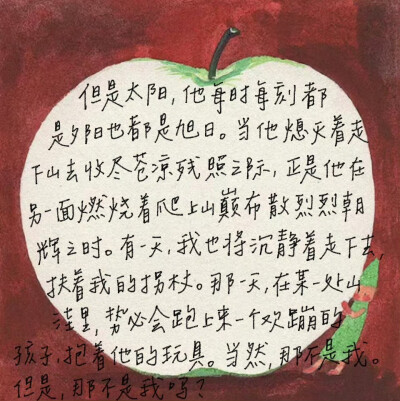 但是太阳，他每时每刻都
是夕阳也都是旭日。当他熄灭着走
下山去收尽苍凉残照之际，正是他在
另一面燃烧着爬上山巅布散烈烈朝
辉之时。有一天，我也将沉静着走下去，
扶着我的拐杖。那一天，在某一处山
洼里，势必会跑上来一个欢蹦的
孩子，抱着他的玩具。当然，那不是我。
但是，那不是我吗？